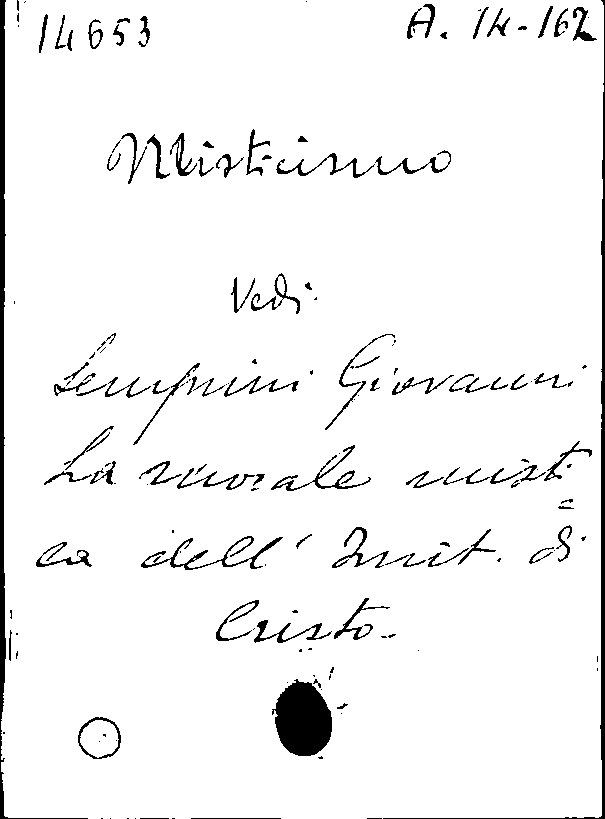 14653 A. 14-162
Misticismo
Vedi
Semprini Giovanni
La morale misti=
ca dell' Imit. di
Cristo.